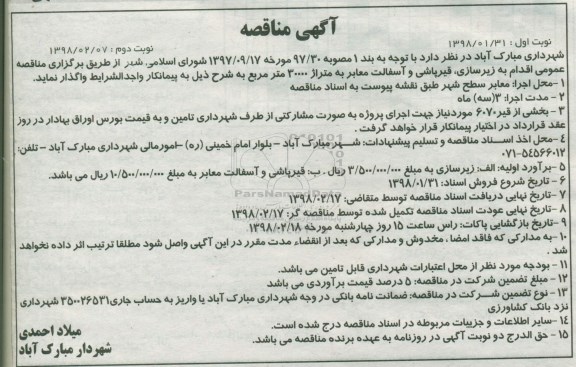 آگهی مناقصه
نوبت اول : ۱۳۹۸/۰۱/۳۱
نوبت دوم : ۱۳۹۸/۰۲/۰۷
شهرداری مبارک آباد در نظر دارد با توجه به بند ۱ مصوبه ۹۷/۳۰ مورخه ۱۳۹۷/۰۹/۱۷ شورای اسلامی شهر از طریق برگزاری مناقصه
عمومی اقدام به زیرسازی، قیرپاشی و آسفالت معابر به متراژ ۳۰۰۰۰ متر مربع به شرح ذیل به پیمانکار واجدالشرایط واگذار نماید.
۱-محل اجرا: معابر سطح شهر طبق نقشه پیوست به اسناد مناقصه
۲- مدت اجرا: ۳(سه) ماه
۳- بخشی از قیر ۶۰۷۰ موردنیاز جهت اجرای پروژه به صورت مشارکتی از طرف شهرداری تامین و به قیمت بورس اوراق بهادار در روز
عقد قرارداد در اختیار پیمانکار قرار خواهد گرفت .
۴-محل اخذ اسناد مناقصه و تسلیم پیشنهادات: شهر مبارک آباد - بلوار امام خمینی (ره) -امورمالی شهرداری مبارک آباد - تلفن:
۰۷۱-۵۴۵۶۶۰۱۲
۵-برآورد اولیه: الف: زیرسازی به مبلغ ۳/۵۰۰/۰۰۰/۰۰۰ ریال . ب: قیرپاشی و آسفالت معابر به مبلغ ۱۰/۵۰۰/۰۰۰/۰۰۰ ریال می باشد.
۶- تاریخ شروع فروش اسناد: ۱۳۹۸/۰۱/۳۱
۷-تاریخ نهایی دریافت اسناد مناقصه توسط متقاضی: ۱۳۹۸/۰۲/۱۷
۸- تاریخ نهایی عودت اسناد مناقصه تکمیل شده توسط مناقصه گر: ۱۳۹۸/۰۲/۱۷
۹-تاریخ بازگشایی پاکات: راس ساعت ۱۵ روز چهارشنبه مورخه ۱۳۹۸/۰۲/۱۸
۱۰-به مدارکی که فاقد امضا ، مخدوش و مدارکی که بعد از انقضاء مدت مقرر در این آگهی واصل شود مطلقا ترتیب اثر داده نخواهد
شد .
۱۱- بودجه مورد نظر از محل اعتبارات شهرداری قابل تامین می باشد.
۱۲- مبلغ تضمین شرکت در مناقصه: ۵ درصد قیمت برآوردی می باشد
۱۳- نوع تضمین شرکت در مناقصه: ضمانت نامه بانکی در وجه شهرداری مبارک آباد یا واریز به حساب جاری ۳۵۰۰۲۶۵۳۱ شهرداری
نزد بانک کشاورزی
۱۴-سایر اطلاعات و جزییات مربوطه در اسناد مناقصه درج شده است.
۱۵- حق الدرج دو نوبت آگهی در روزنامه به عهده برنده مناقصه می باشد.
میلاد احمدی
شهردار مبارک آباد